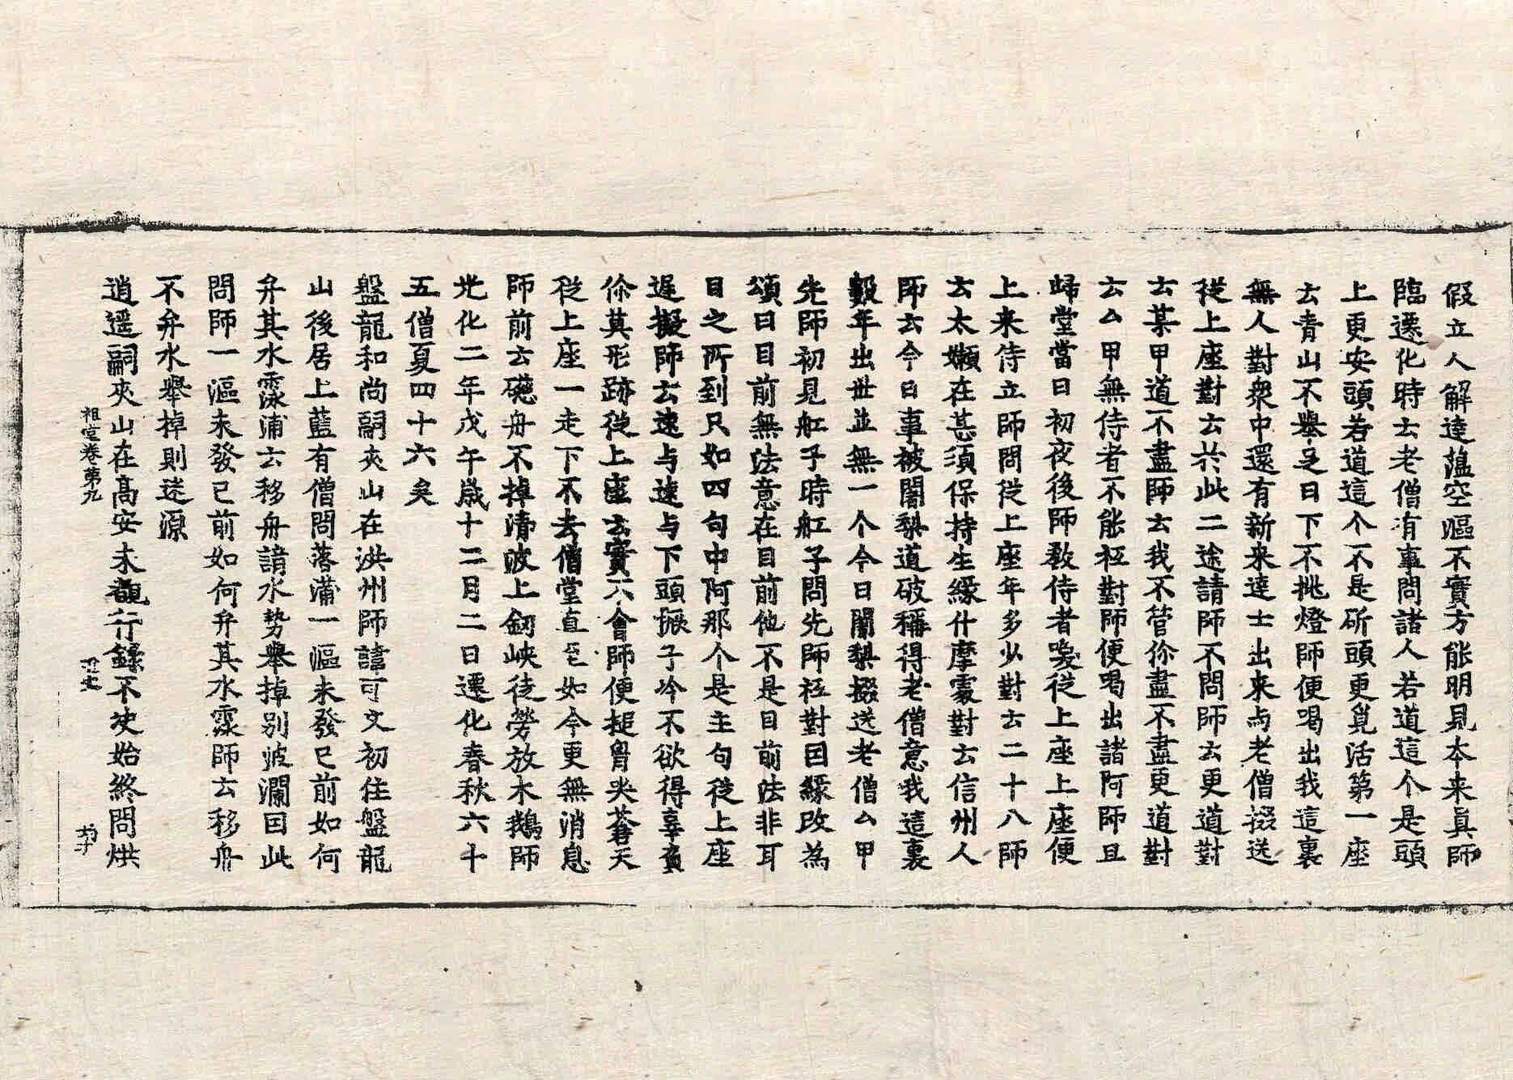 假立人解達蕰空漚不實方能明見本来真師
臨遷化時云老僧有事問諸人若道這个是頭
上更安頭若道這个不是斫頭更覓活第一座
云青山不舉足日下不挑燈師便喝出我這裏
無人對衆中還有新来達士出来与老僧掇送
從上座對云於此二途請師不問師云更道對
云某甲道不盡師云我不管你盡不盡更道對
云厶甲無侍者不能秪對師便喝出諸阿師且
歸堂當日初夜後師教侍者喚從上座上座便
上来侍立師問從上座年多少對云二十八師
云太嬾在甚須保持生緣什摩處對云信州人
師云今日事被闍梨道破稱得老僧意我這裏
數年出世並無一个今日闍梨掇送老僧厶甲
先師初見舡子時舡子問先師秪對因緣改為
頌曰目前無法意在目前他不是目前法非耳
目之所到只如四句中阿那个是主句從上座
遲擬師云速与速与下頭振子冷不欲得辜負
你莫形跡從上座云實不會師便搥胷哭蒼天
從上座一走下不去僧堂直至如今更無消息
師前云礠舟不掉清波上劒峽徒勞放木鵝師
光化二年戊午歲十二月二日遷化春秋六十
五僧夏四十六矣
盤龍和尚嗣夾山在洪州師諱可文初住盤龍
山後居上藍有僧問落蒲一漚未發已前如何
弁其水𧵍蒲云移舟諳水势舉掉別波瀾因此
問師一漚未發已前如何弁其水𧵍師云移舟
不弁水舉掉則迷源
逍遥嗣夾山在高安未覩行錄不決始終問烘
祖堂卷第九